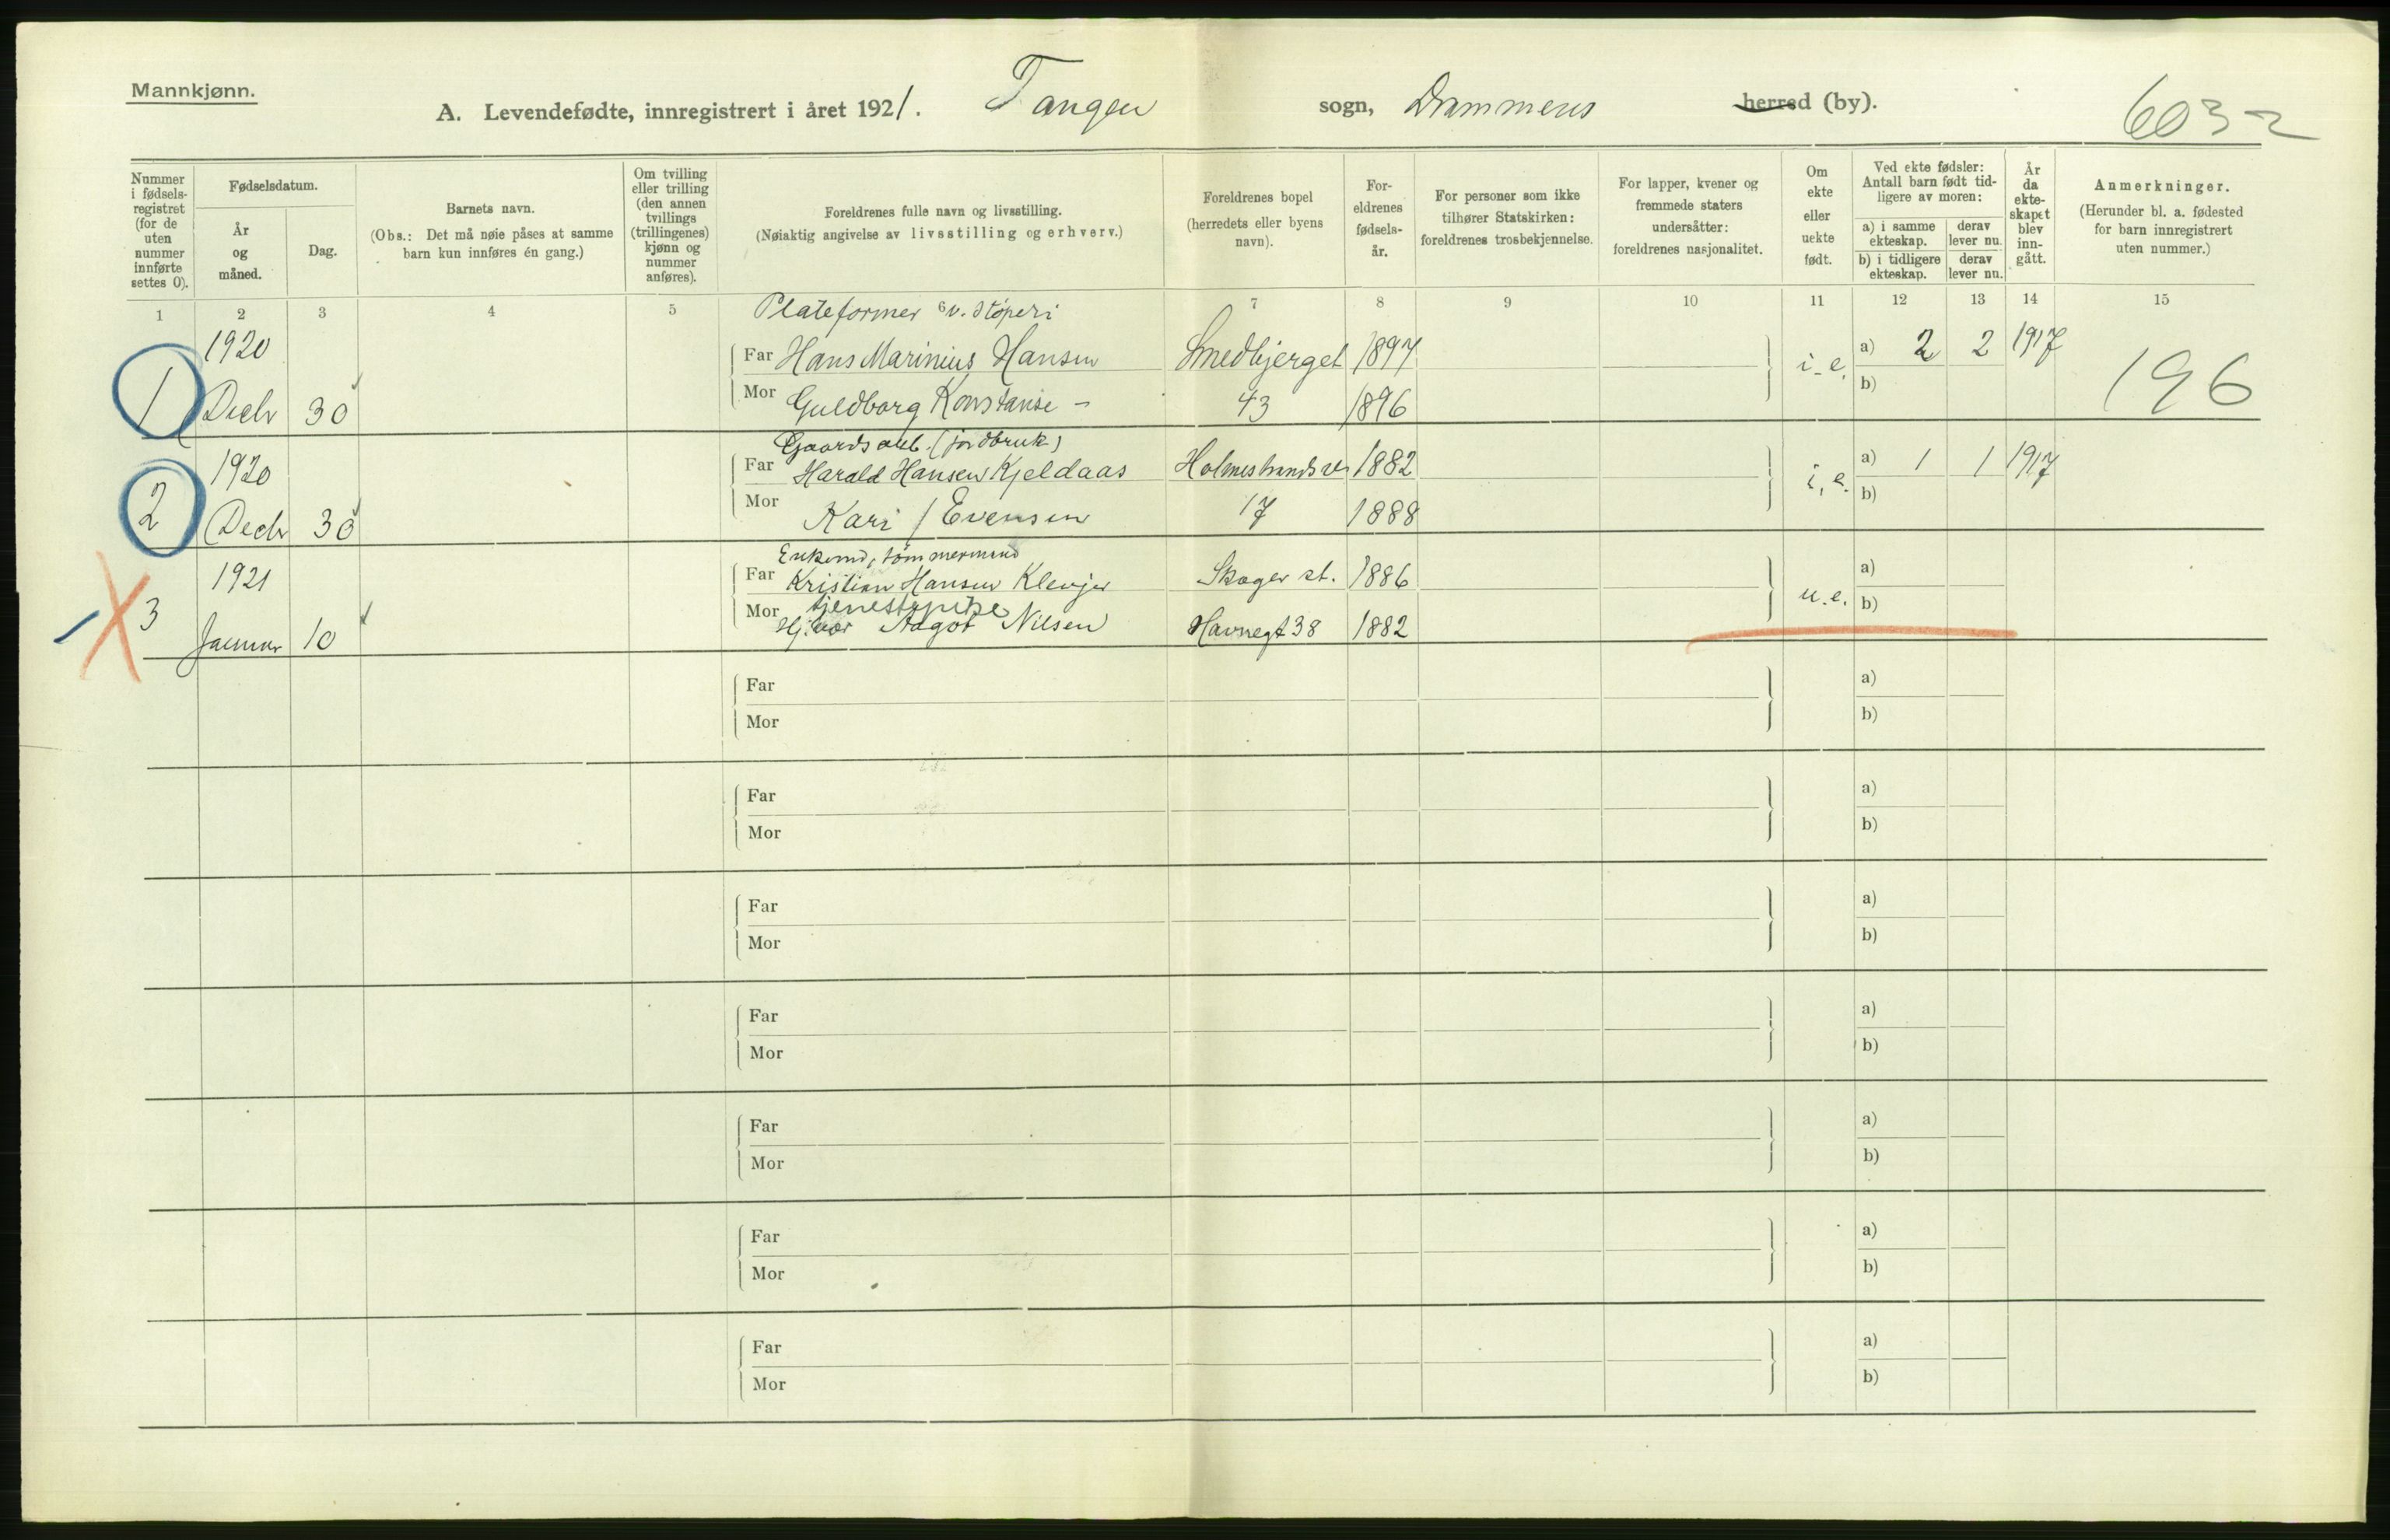 Mannkjønn.
A. Levendefødte, innregistrert i året 1921. Tangen sogn, Drammens herred (by).
6032
Nummer i fødsels-registret (for de uten nummer innførte settes 0).
Fødselsdatum.
År og måned.
Dag.
Barnets navn.
(Obs.: Det må nøie påses at samme barn kun innføres én gang.)
Om tvilling eller trilling (den annen tvillings (trillingenes) kjønn og nummer anføres).
Foreldrenes fulle navn og livsstilling.
(Nøiaktig angivelse av livsstilling og erhverv.)
Foreldrenes bopel
(herredets eller byens navn).
For-eldrenes fødsels-år.
For personer som ikke tilhører Statskirken:
foreldrenes trosbekjennelse.
For lapper, kvener og fremmede staters undersåtter:
foreldrenes nasjonalitet.
Om ekte eller uekte født.
Ved ekte fødsler:
Antall barn født tid-ligere av moren:
a) i samme ekteskap.
derav lever nu.
b) i tidligere ekteskap.
derav lever nu.
År da ekte-skapet blev inn-gått.
Anmerkninger.
(Herunder bl. a. fødested for barn innregistrert uten nummer.)
1 2 3 4 5 6 7 8 9 10 11 12 13 14 15
Plateformer v. Støperi
1920
Far Hans Marinius Hansen Smedbjerget 1897 a) 2 2 1917
1 Decbr 30 i. e. 196
Mor Guldborg Konstanse – 43 1896 b)
Gaardsarb. (jordbruk)
1920
Far Harald Hansen Kjeldaas 1882 a) 1 1 1917
2 Decbr 30 i. e.
Mor Kari / Evensen 17 1888 b)
Enkemd, tømmermand
1921
Far Kristian Hansen Skoger st. 1886 a)
tjenestepike
3 u. e. b)
Januar 10 Mor Aagot Nilsen Havnegt 38 1882
Far a)
Mor b)
Far a)
Mor b)
Far a)
Mor b)
Far a)
Mor b)
Far a)
Mor b)
Far a)
Mor b)
Far a)
Mor b)